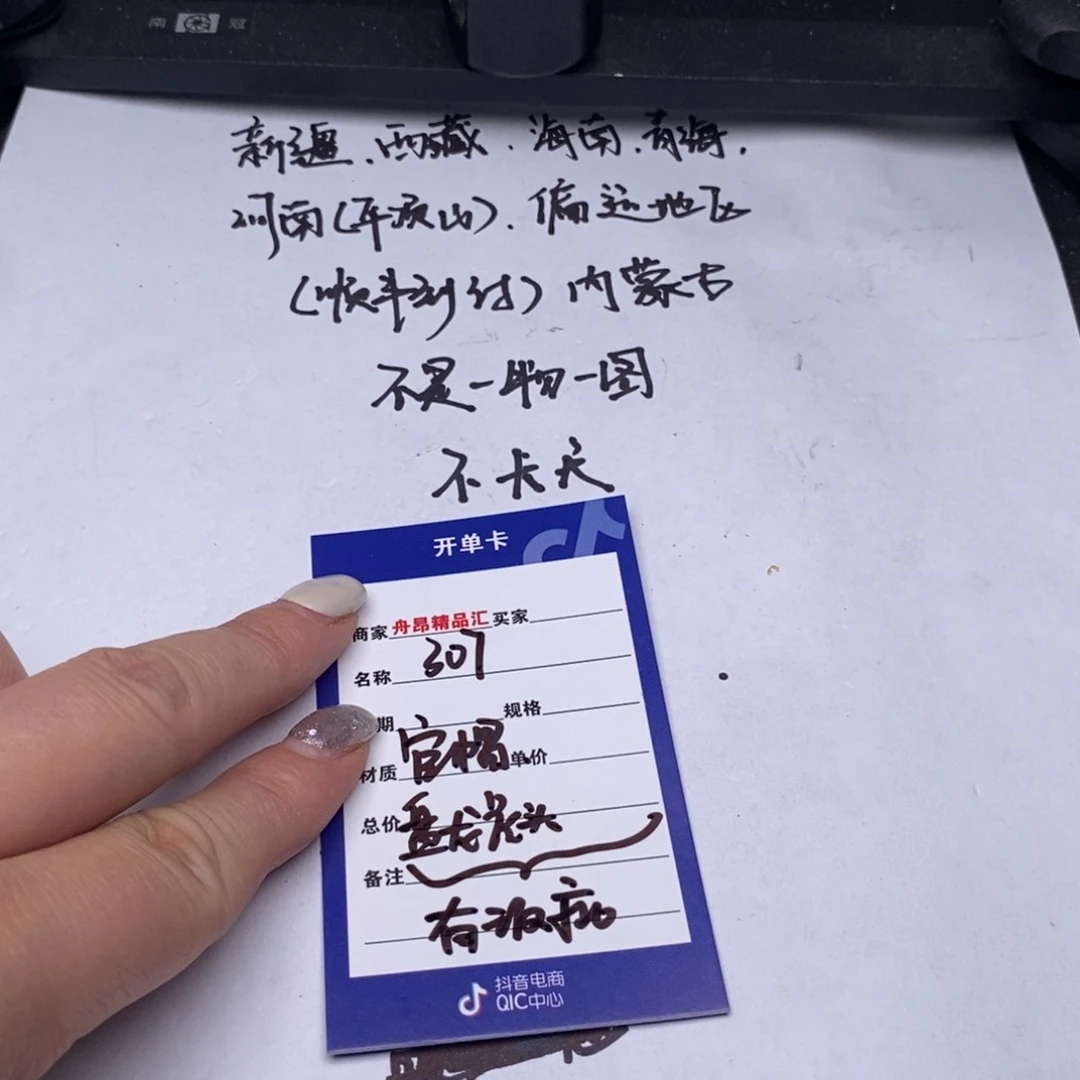 南 冠
新疆、西藏、海南、青海、
河南(平顶山)、偏远地区
(顺丰到付)内蒙古
不是一物一图
不卡天
开单卡
商家 舟昂精品汇 买家
名称 307
期 规格
材质 官帽 单价
总价 盘龙 头
备注
有瑕疵
抖音电商
QIC中心